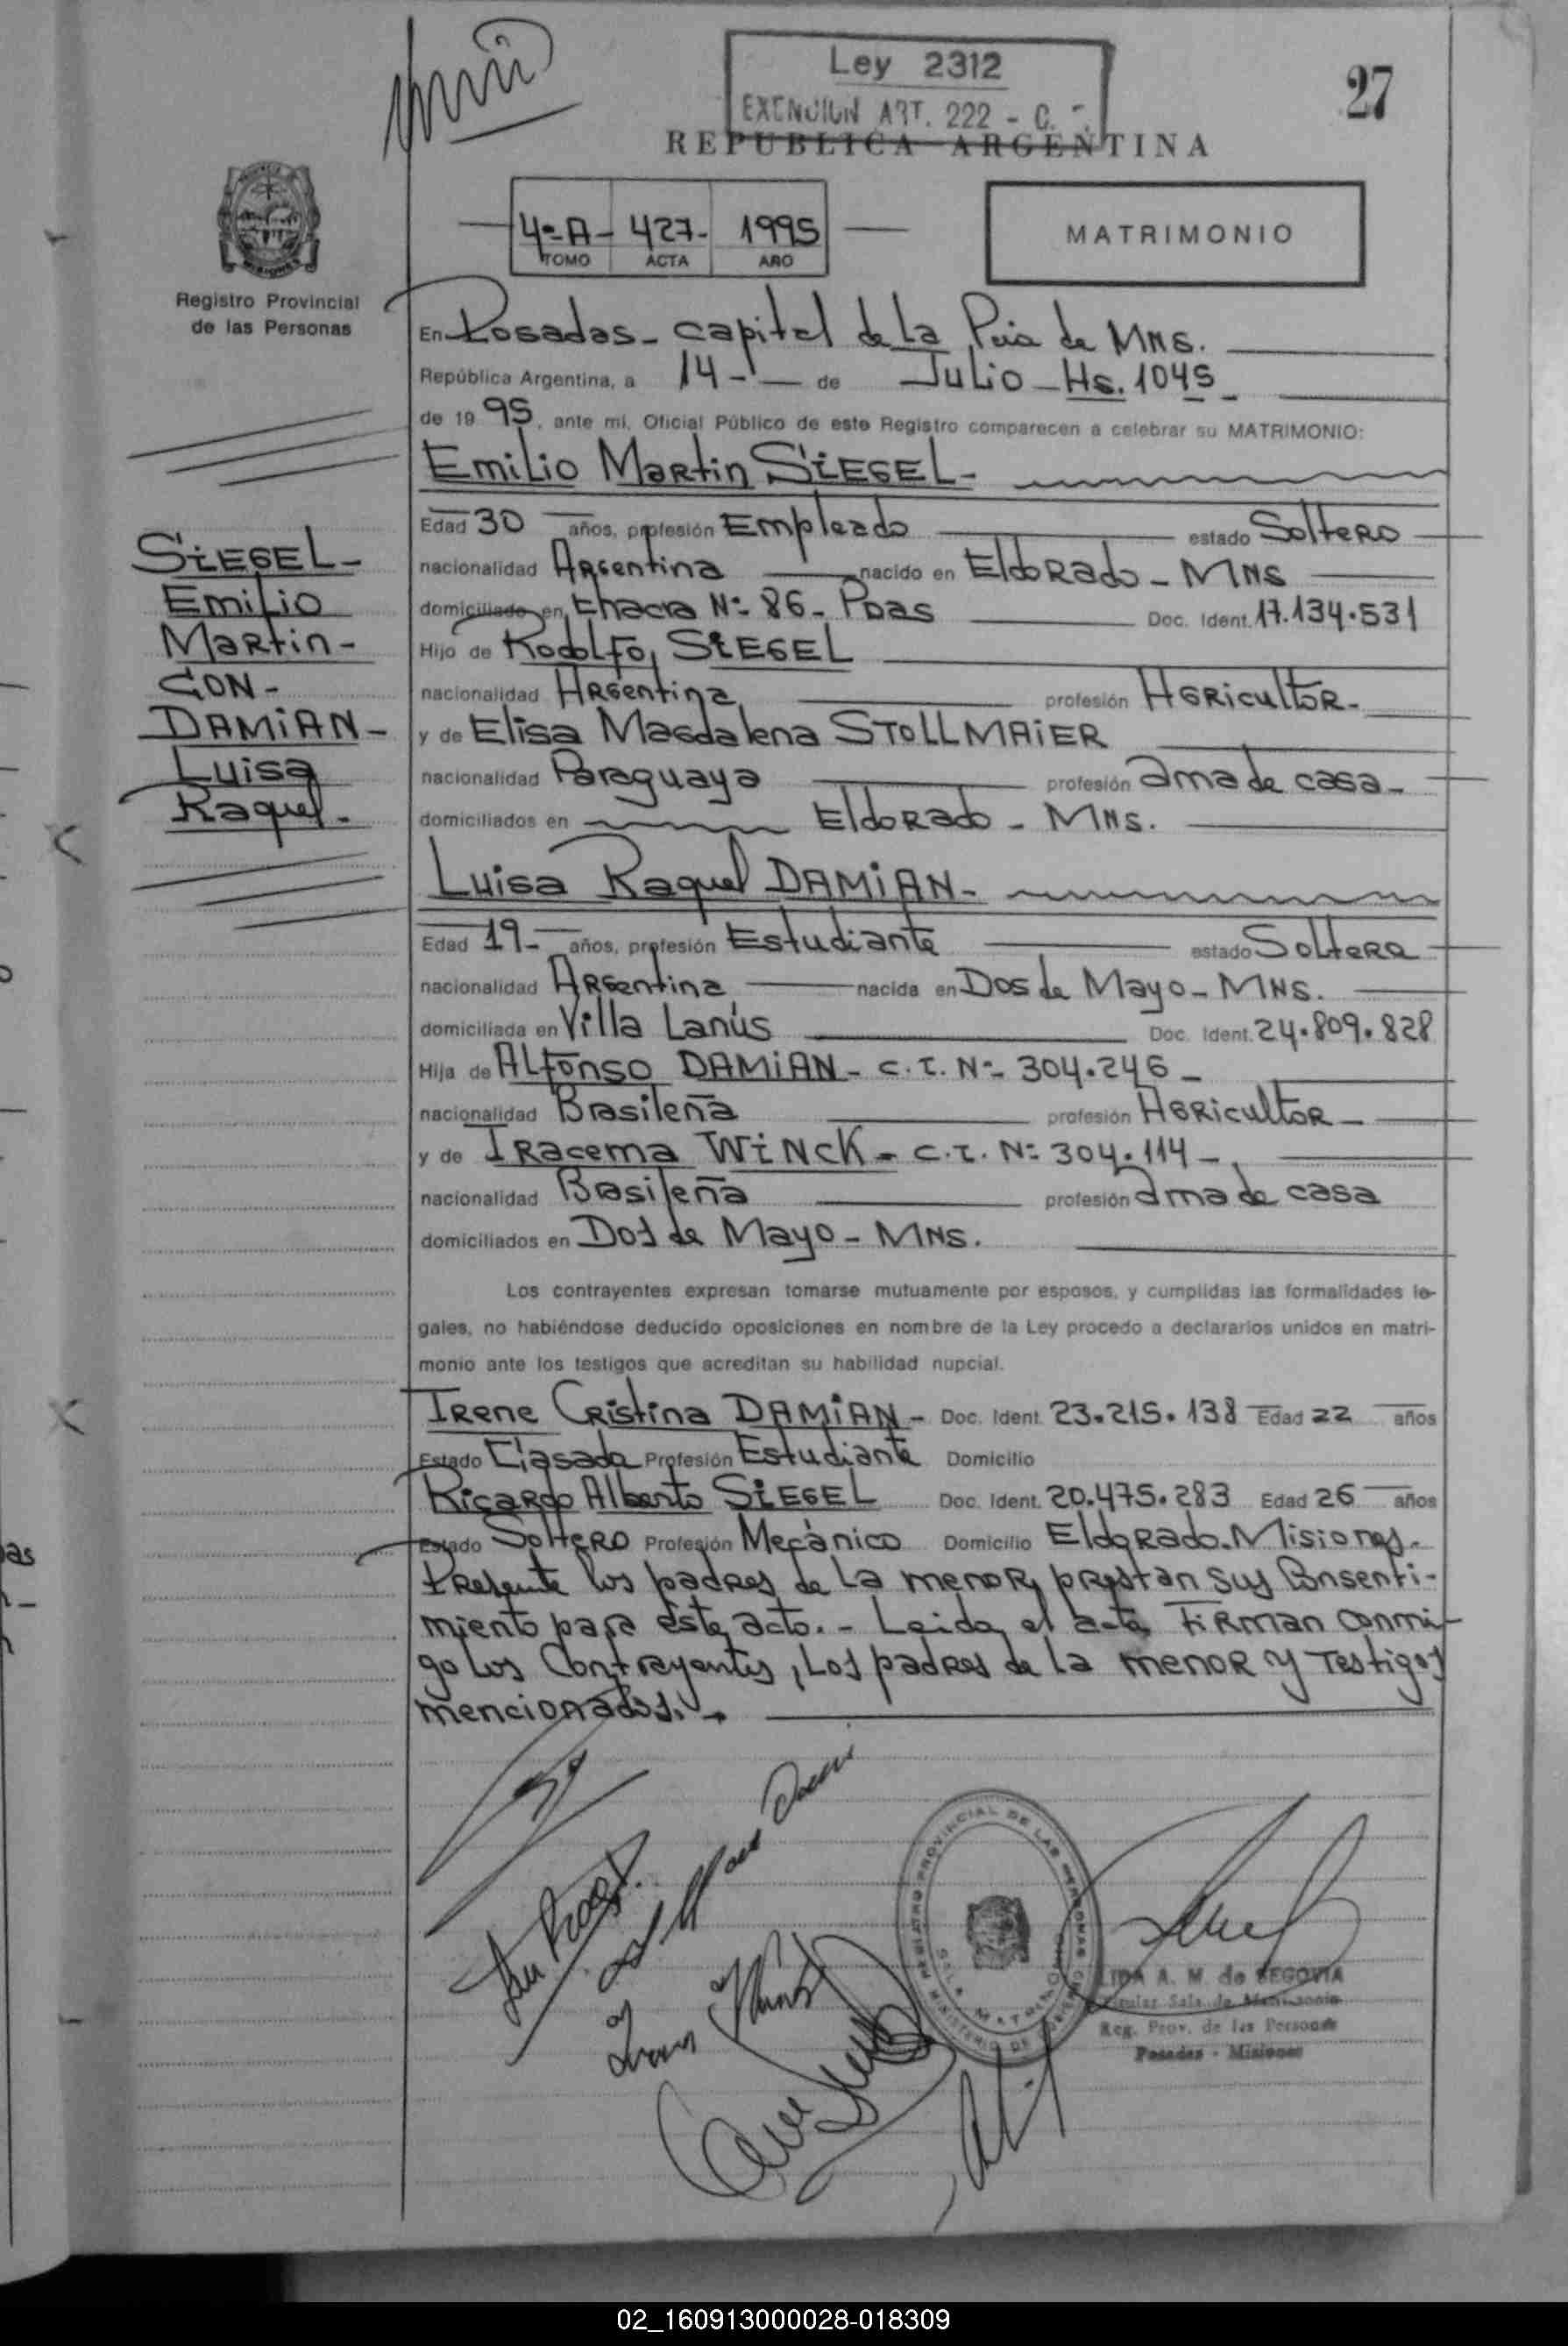 Ley 2312
EXENCION ART. 222 - C.
27
REPUBLICA ARGENTINA
4º-A- 427- 1995
TOMO ACTA AÑO
MATRIMONIO
Registro Provincial
de las Personas
En Posadas - capital de La Pcia de MNS.
República Argentina, a 14 - de Julio - Hs. 1045
de 19 95, ante mí, Oficial Público de este Registro comparecen a celebrar su MATRIMONIO:
Emilio Martin SIEGEL-
Edad 30 años, profesión Empleado estado Soltero
nacionalidad Argentina nacido en Eldorado - MNS
domiciliado en Chacra Nº 86 - Pdas Doc. Ident. 17.134.531
Hijo de Rodolfo SIEGEL
nacionalidad Argentina profesión Agricultor-
y de Elisa Magdalena STOLLMAIER
nacionalidad Paraguaya profesión ama de casa-
domiciliados en Eldorado - MNS.
SIEGEL-
Emilio
Martin-
CON-
DAMIAN-
Luisa
Raquel-
Luisa Raquel DAMIAN-
Edad 19- años, profesión Estudiante estado Soltera
nacionalidad Argentina nacida en Dos de Mayo - MNS.
domiciliada en Villa Lanús Doc. Ident. 24.809.828
Hija de Alfonso DAMIAN - C.I. Nº 304.246 -
nacionalidad Brasileña profesión Agricultor -
y de Iracema WINCK - C.I. Nº 304.114 -
nacionalidad Brasileña profesión ama de casa
domiciliados en Dos de Mayo - MNS.
Los contrayentes expresan tomarse mutuamente por esposos, y cumplidas las formalidades le-
gales, no habiéndose deducido oposiciones en nombre de la Ley procedo a declararlos unidos en matri-
monio ante los testigos que acreditan su habilidad nupcial.
Irene Cristina DAMIAN - Doc. Ident. 23.215.138 Edad 22 años
Estado Casada Profesión Estudiante Domicilio
Ricardo Alberto SIEGEL Doc. Ident. 20.475.283 Edad 26 años
Estado Soltero Profesión Mecánico Domicilio Eldorado-Misiones.
Presente los padres de La menor, prestan sus Consenti-
miento para este acto. - Leida el acta, Firman conmi-
go los Contrayentes, Los padres de la menor y Testigos
mencionados.
REGISTRO PROVINCIAL DE LAS PERSONAS
SALA MATRIMONIO
MINISTERIO DE GOBIERNO
LIDA A. M. de SEGOVIA
Titular Sala de Matrimonio
Reg. Prov. de las Personas
Posadas - Misiones
02_160913000028-018309